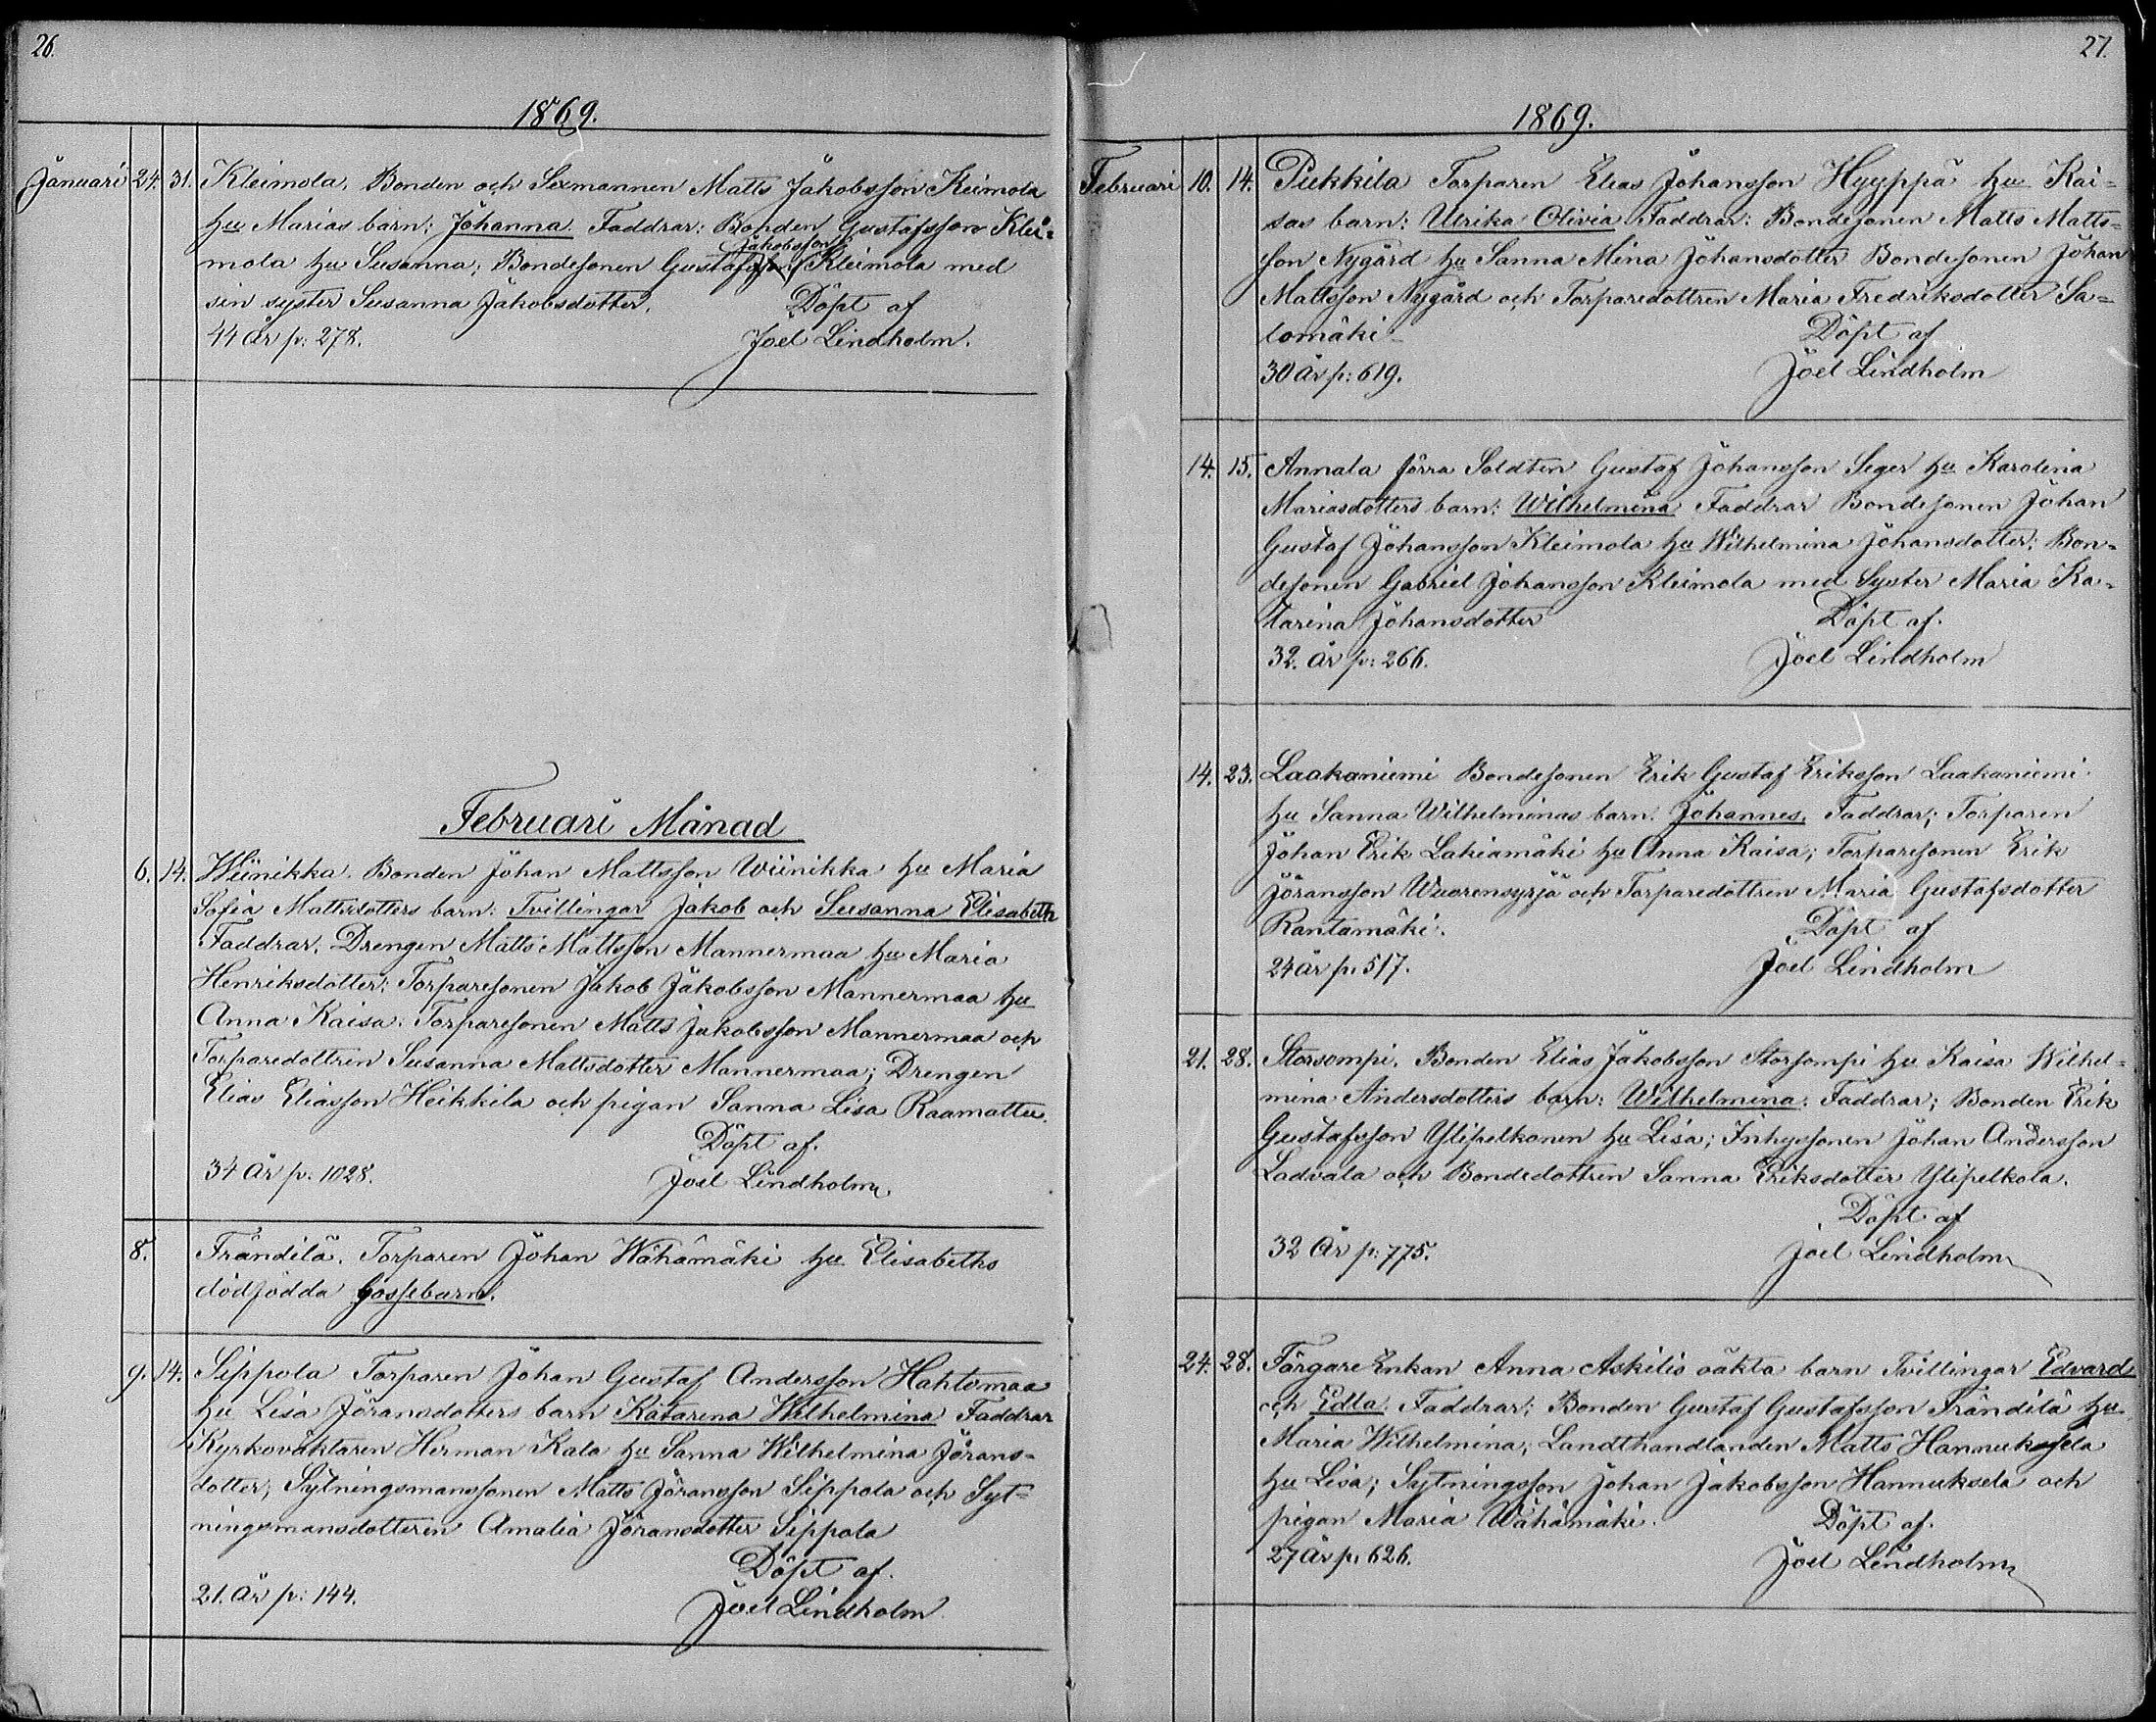 26.
1869.
Januari 24. 31. Kleimola, Bonden och Sexmannen Matts Jakobsson Kleimola
hu Marias barn: Johanna. Faddrar: Bonden Gustafsson Klei-
Jakobsson
mola hu Susanna; Bondesonen Gustaf Kleimola med
sin syster Susanna Jakobsdotter. Döpt af
44 år p: 278. Joel Lindholm.
Februari Månad
6. 14. Wiinikka. Bonden Johan Mattsson Wiinikka hu Maria
Sofia Mattsdotters barn: Tvillingar Jakob och Susanna Elisabeth
Faddrar: Drengen Matts Mattsson Mannermaa hu Maria
Henriksdotter; Torparesonen Jakob Jakobsson Mannermaa hu
Anna Kaisa; Torparesonen Matts Jakobsson Mannermaa och
Torparedottren Susanna Mattsdotter Mannermaa; Drengen
Elias Eliasson Heikkila och pigan Sanna Lisa Raamattu.
Döpt af.
34 år p. 1028. Joel Lindholm
8. Frändilä. Torparen Johan Wähämäki hu Elisabeths
dödfödda Gossebarn.
9. 14. Sippola Torparen Johan Gustaf Andersson Hahtomaa
hu Lisa Jöransdotters barn Katarina Wilhelmina Faddrar
Kyrkoväktaren Herman Kala hu Sanna Wilhelmina Jörans-
dotter; Sytningsmanssonen Matts Jöransson Sippola och Syt-
ningsmansdotteren Amalia Jöransdotter Sippola
Döpt af.
21. år p: 144. Joel Lindholm
27.
1869.
Februari 10. 14. Pukkila Torparen Elias Johansson Hyyppä hu Kai-
sas barn: Ulrika Olivia Faddrar: Bondesonen Matts Matts-
son Nygård hu Sanna Mina Johansdotter Bondesonen Johan
Mattsson Nygård och Torparedottren Maria Fredriksdotter Sa-
lomäki Döpt af
30 år p: 619. Joel Lindholm
14. 15. Annala förra Soldten Gustaf Johansson Seger hu Karolina
Mariasdotters barn: Wilhelmina Faddrar Bondesonen Johan
Gustaf Johansson Kleimola hu Wilhelmina Johansdotter; Bon-
desonen Gabriel Johansson Kleimola med Syster Maria Ka-
tarina Johansdotter Döpt af.
32. år p: 266. Joel Lindholm
14. 23. Laakaniemi Bondesonen Erik Gustaf Eriksson Laakaniemi
hu Sanna Wilhelminas barn. Johannes. Faddrar; Torparen
Johan Erik Lakiamäki hu Anna Kaisa; Torparesonen Erik
Jöransson Wuorensyrjä och Torparedottren Maria Gustafsdotter
Rantamäki. Döpt af
24 år p. 517. Joel Lindholm
21. 28. Storsompi. Bonden Elias Jakobsson Storsompi hu Kaisa Wilhel-
mina Andersdotters barn: Wilhelmina. Faddrar; Bonden Erik
Gustafsson Ylipelkonen hu Lisa; Inhyssonen Johan Andersson
Ladvala och Bondedottren Sanna Eriksdotter Ylipelkola.
Döpt af
32 år p: 775. Joel Lindholm
24. 28. Färgare Enkan Anna Askilis oäkta barn Tvillingar Edvard
och Edla. Faddrar; Bonden Gustaf Gustafsson Frändilä hu
Maria Wilhelmina; Landthandlanden Matts Hannuksela
hu Lisa; Sytningsson Johan Jakobsson Hannuksela och
pigan Maria Wähämäki. Döpt af.
27 år p. 626. Joel Lindholm